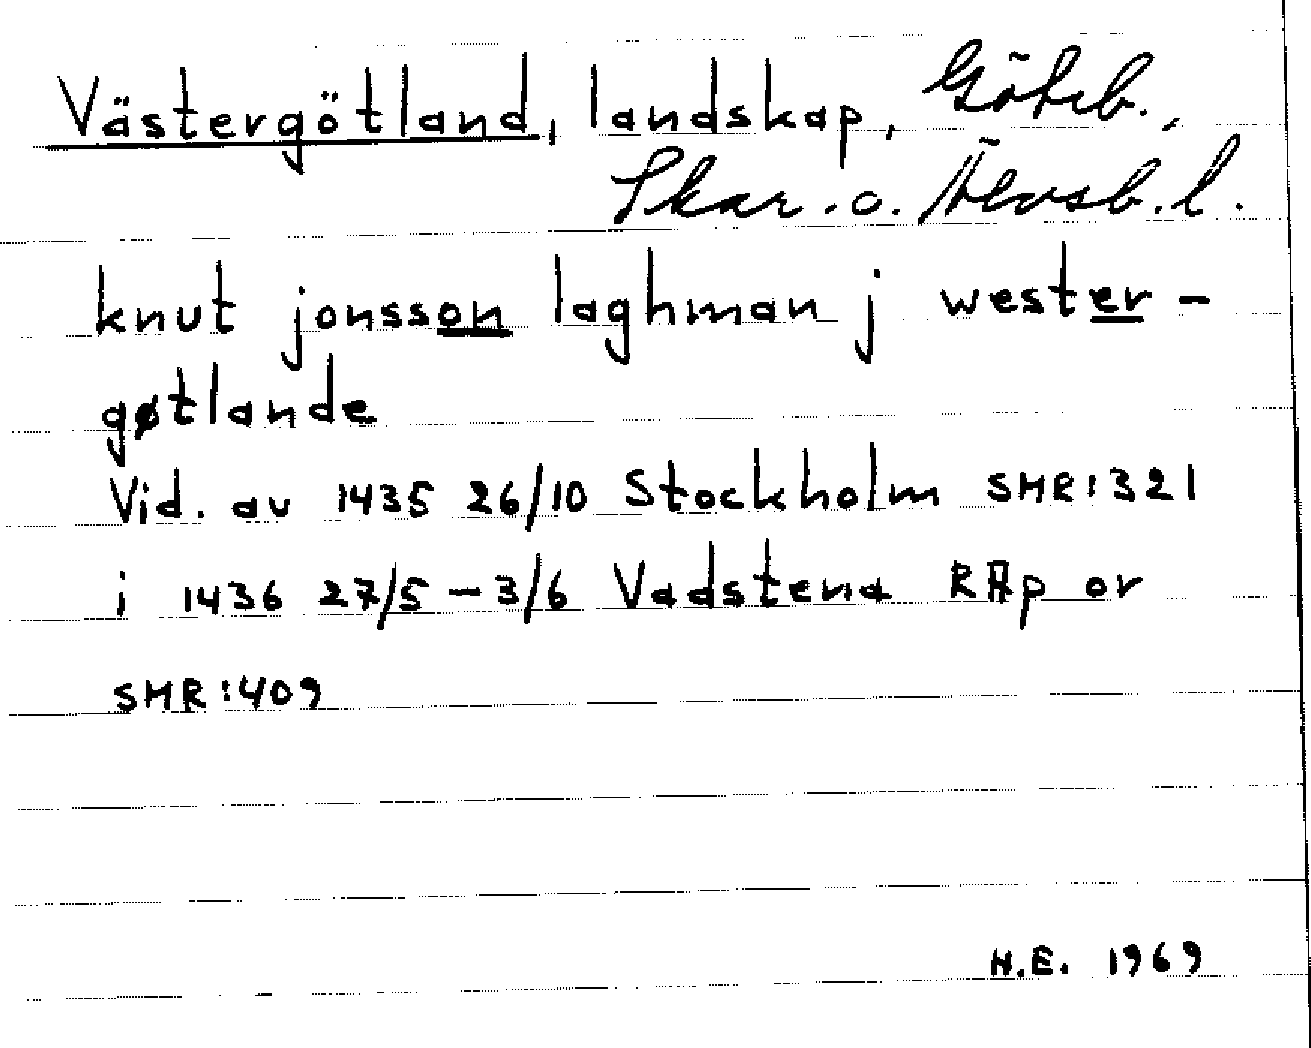 Västergötland, landskap, Göteb.,
Skar. o. Älvsb. l.
knut jonsson laghman j wester-
gøtlande
Vid. av 1435 26/10 Stockholm SMR:321
i 1436 27/5 - 3/6 Vadstena RAp or
SMR:409
H.E. 1969